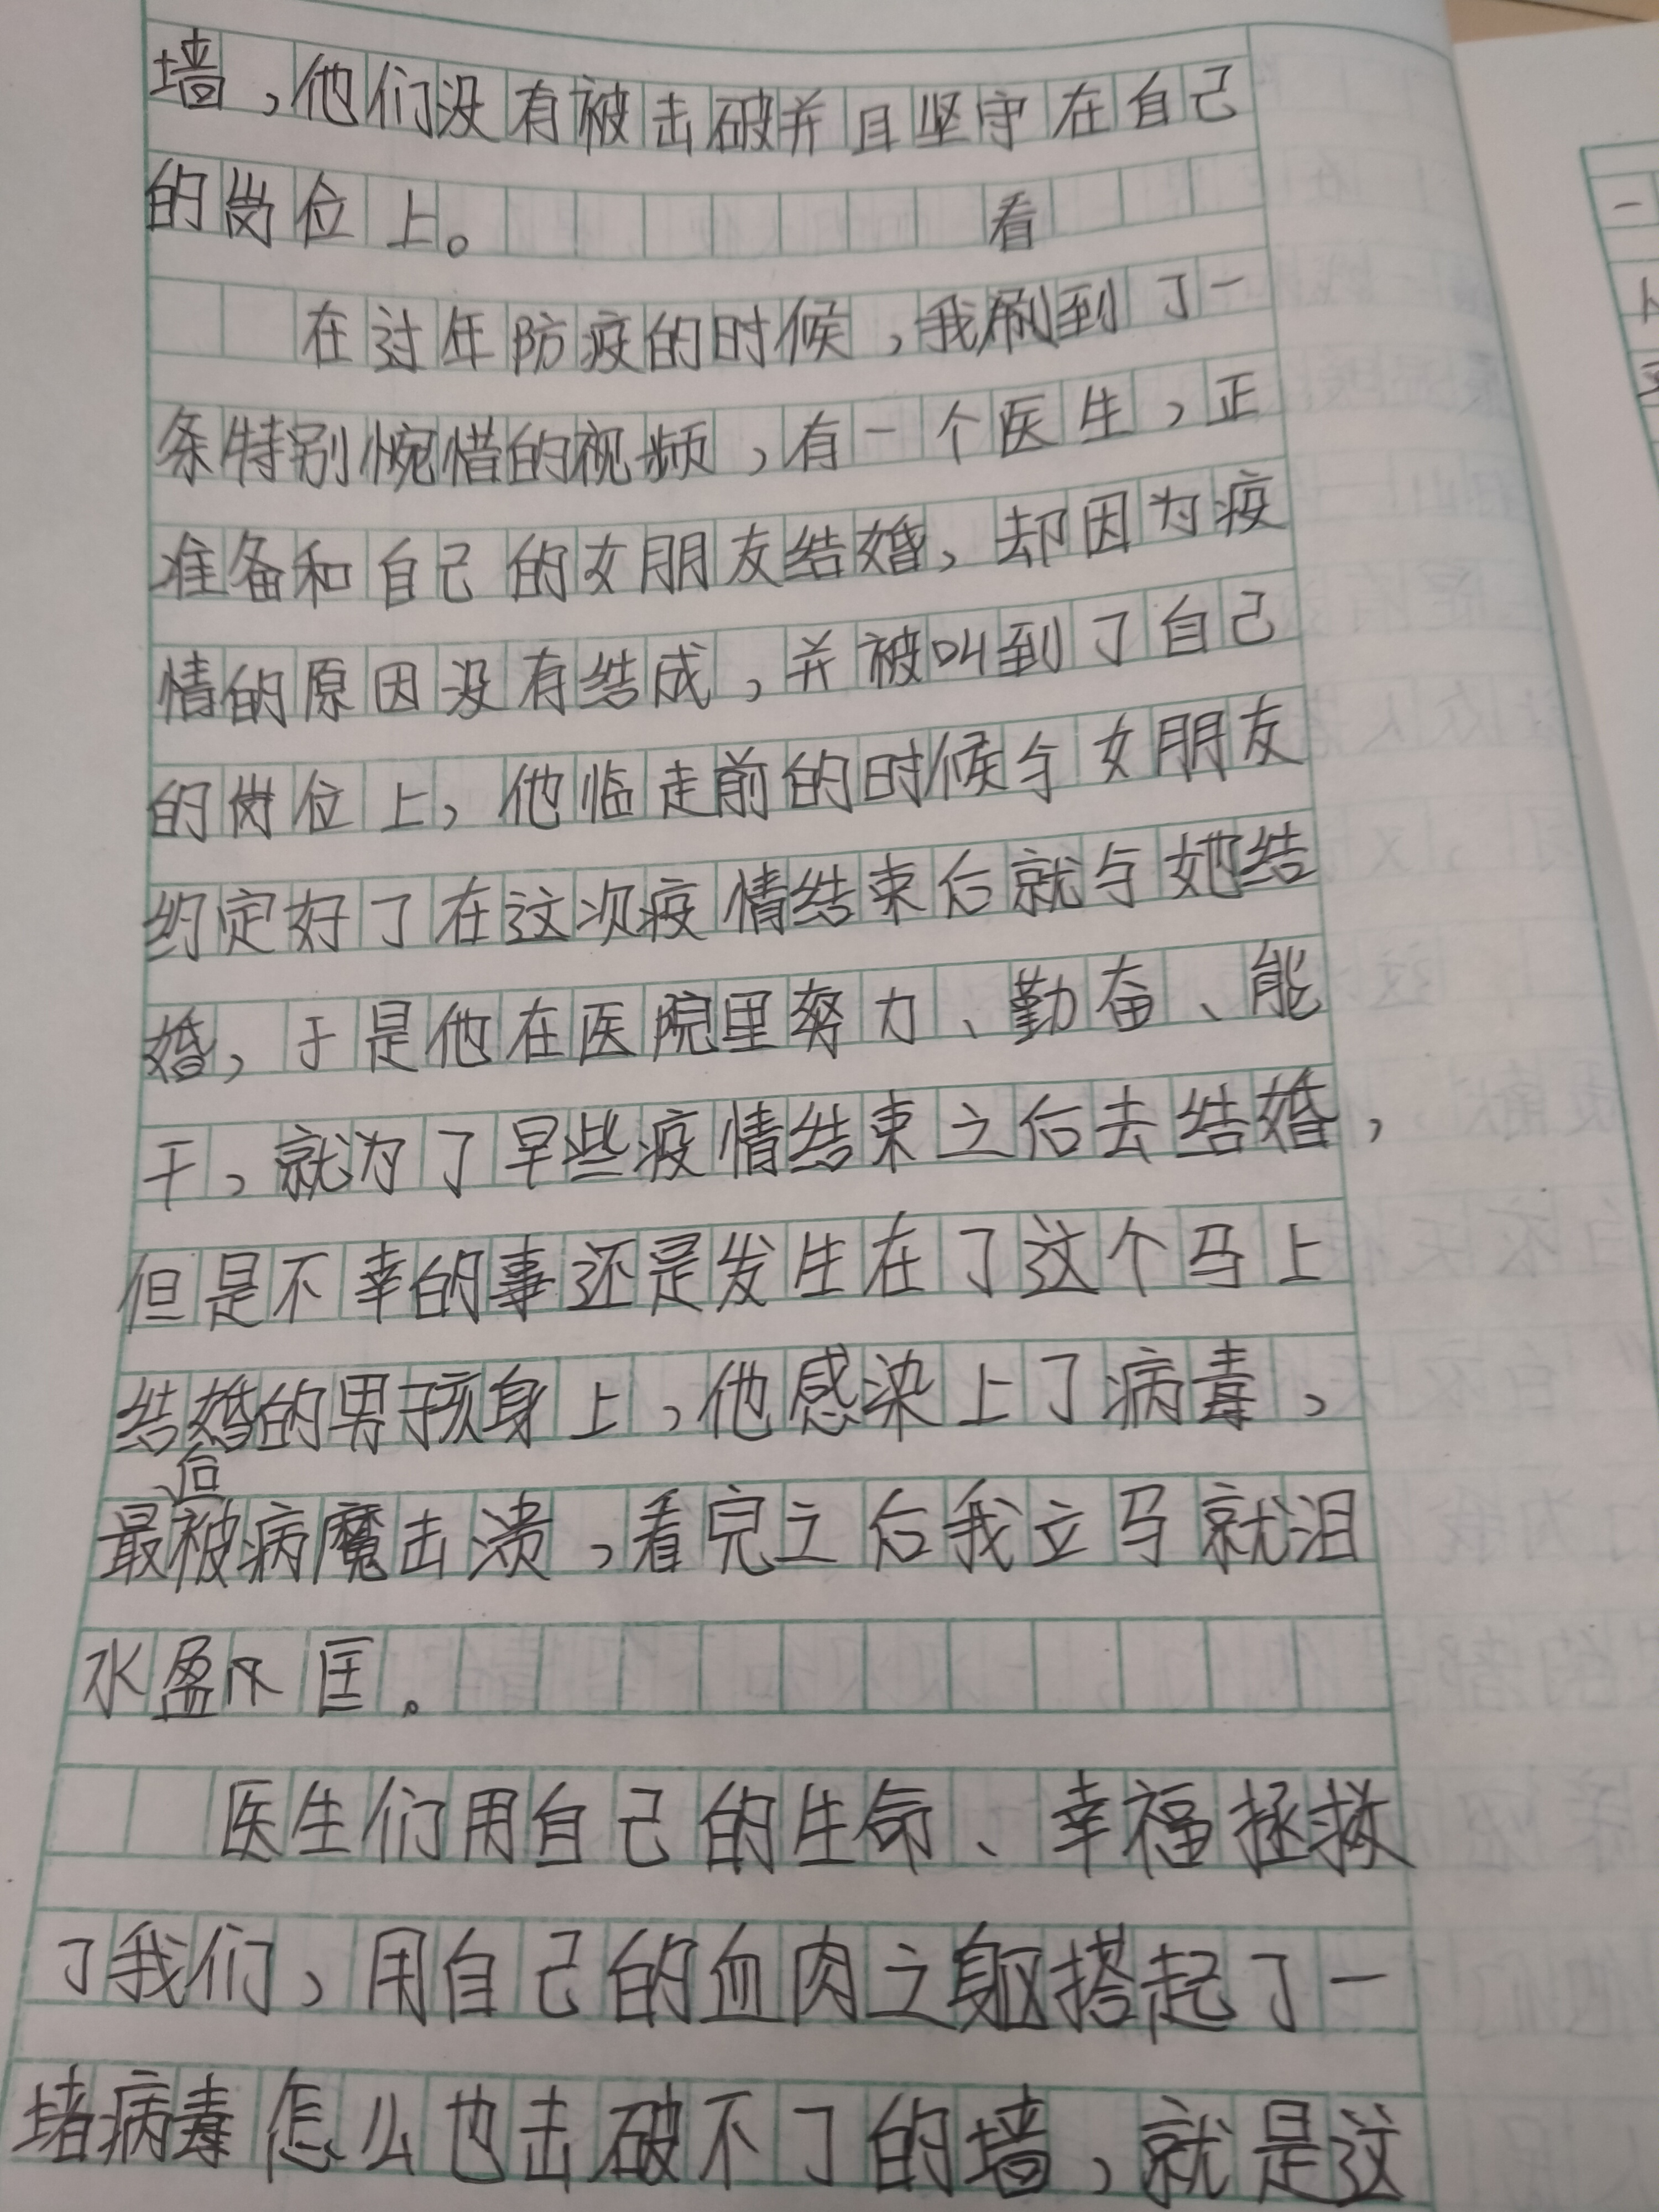 墙，他们没有被击破并且坚守在自己
的岗位上。
看
在过年防疫的时候，我刷到了一
条特别惋惜的视频，有一个医生，正
准备和自己的女朋友结婚，却因为疫
情的原因没有结成，并被叫到了自己
的岗位上，他临走前的时候与女朋友
约定好了在这次疫情结束后就与她结
婚，于是他在医院里努力、勤奋、能
干，就为了早些疫情结束之后去结婚，
但是不幸的事还是发生在了这个马上
结婚的男孩身上，他感染上了病毒，
后
最被病魔击溃，看完之后我立马就泪
水盈不匡。
医生们用自己的生命、幸福拯救
了我们，用自己的血肉之躯搭起了一
堵病毒怎么也击破不了的墙，就是这